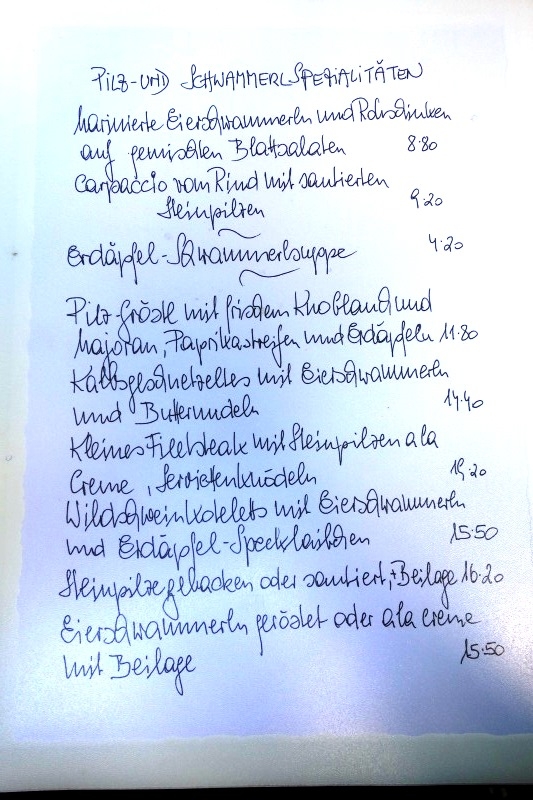 PILZ-UND SCHWAMMERLSPEZIALITÄTEN
Marinierte Eierschwammerln und Rohschinken
auf gemischten Blattsalaten 8·80
Carpaccio vom Rind mit sautierten
Steinpilzen 9·20
Erdäpfel-Schwammerlsuppe 4·20
Pilzgröstl mit frischem Knoblauch und
Majoran, Paprikastreifen und Erdäpfeln 11·80
Kalbsgeschnetzeltes mit Eierschwammerln
und Butternudeln 14·40
Kleines Filetsteak mit Steinpilzen a la
Creme, Serviettenknödeln 19·20
Wildschweinkoteletts mit Eierschwammerln
und Erdäpfel-Specklaibchen 15·50
Steinpilze gebacken oder sautiert, +Beilage 16·20
Eierschwammerln geröstet oder a la creme
mit Beilage 15·50